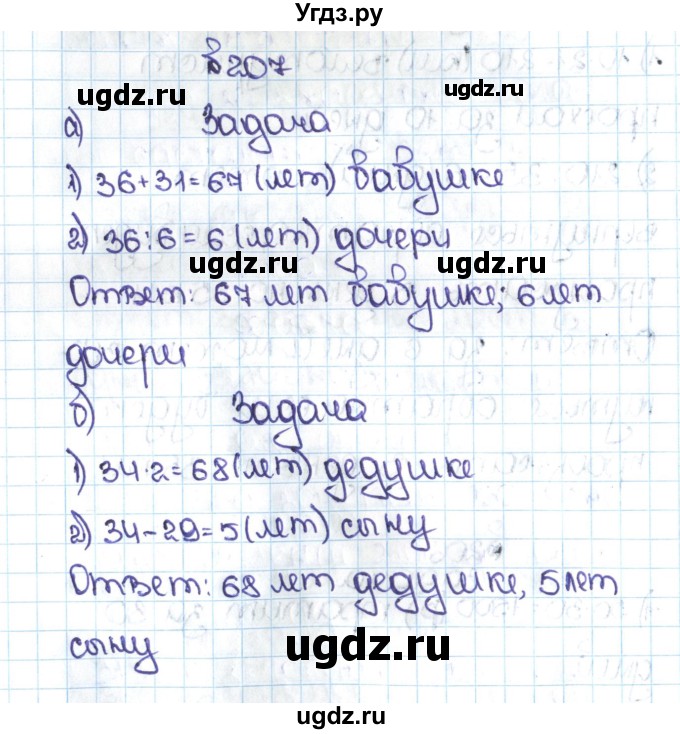 Угдз.ру
№207
ugdz.ru ugdz.ru
а) Задача
1) 36+31=67 (лет) бабушке
2) 36:6=6 (лет) дочери
ugdz.ru ugdz.ru
Ответ: 67 лет бабушке; 6 лет
дочери
б) Задача
1) 34·2=68 (лет) дедушке
2) 34-29=5 (лет) сыну
Ответ: 68 лет дедушке, 5 лет
сыну
ugdz.ru
ugdz.ru